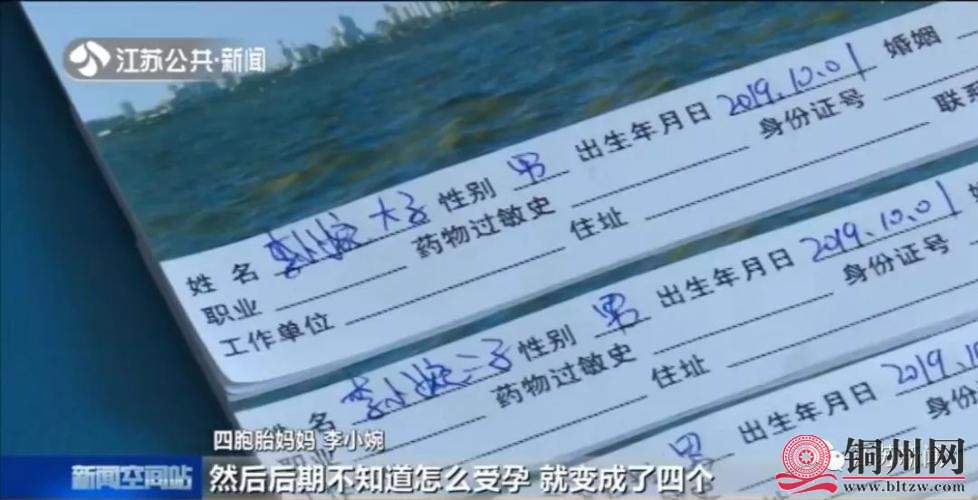 江苏公共·新闻
姓名 李小婉大子 性别 男 出生年月日 2019.10.01 婚姻
职业 药物过敏史 身份证号
工作单位 住址 联系
名 李小婉二子 性别 男 出生年月日 2019.10.01
药物过敏史 身份证号
住址
男 出生年月日 2019.10
身份
四胞胎妈妈 李小婉
新闻空间站
然后后期不知道怎么受孕 就变成了四个
铜州网
www.bltzw.com